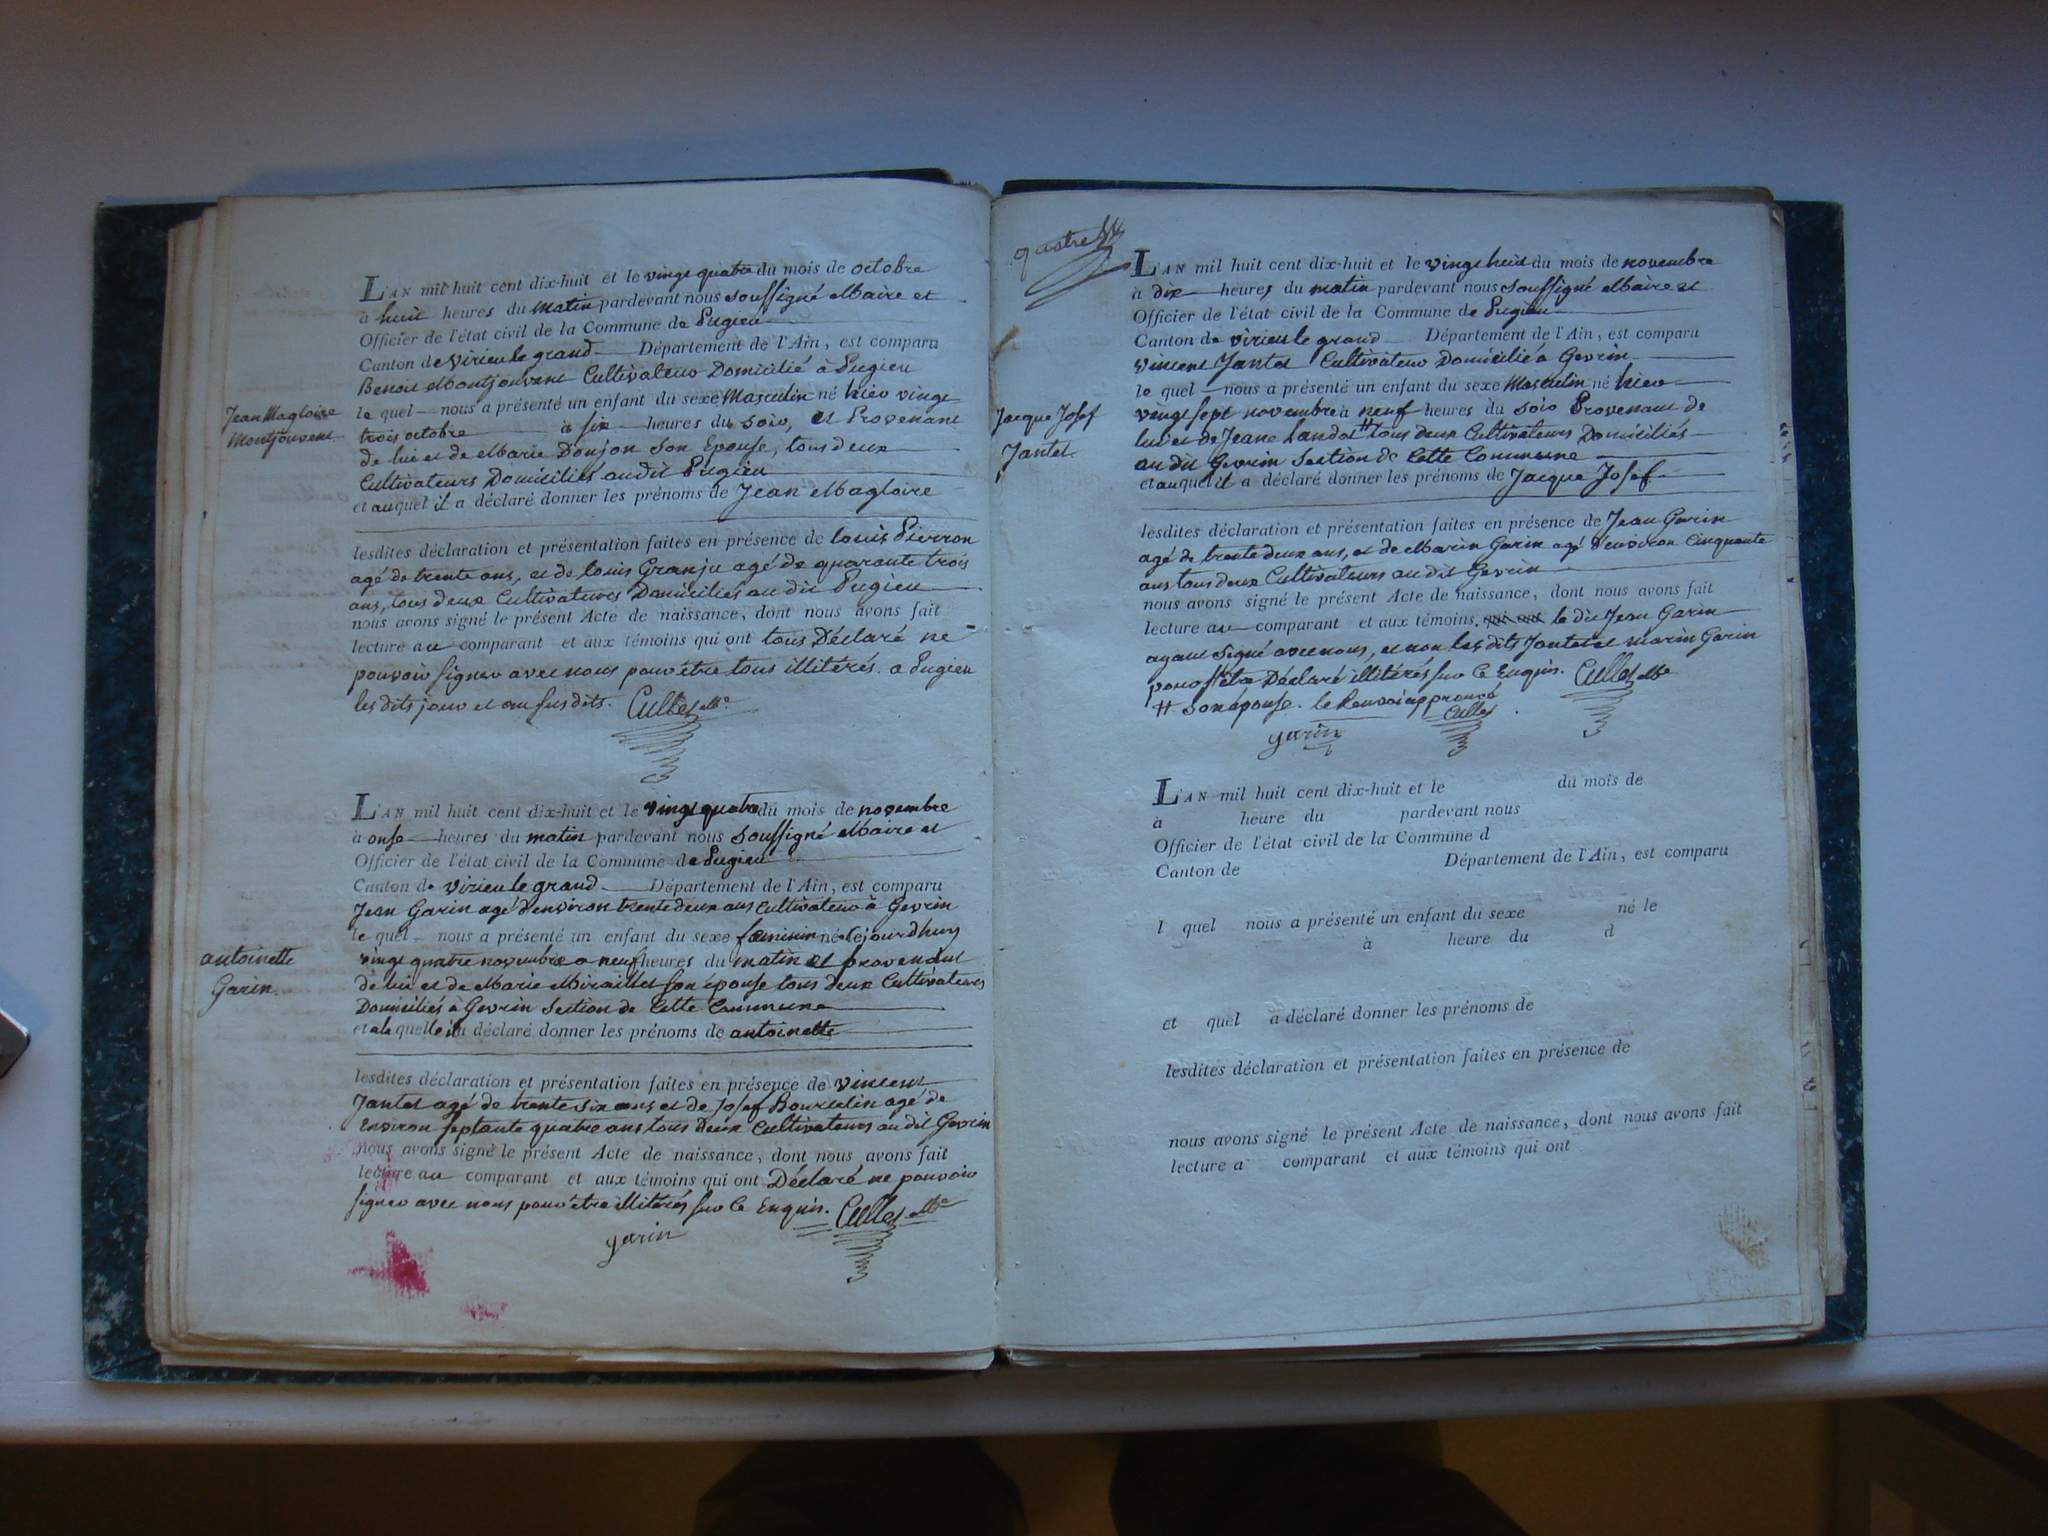 Jean Magloire
Montjouvent
L'AN mil huit cent dix-huit et le vingt quatre du mois de octobre
à huit heures du matin pardevant nous soussigné Maire et
Officier de l'état civil de la Commune de Pugieu
Canton de Virieu le grand Département de l'Ain, est comparu
Benoit Montjouvent Cultivateur Domicilié à Pugieu
le quel nous a présenté un enfant du sexe Masculin né hier vingt
trois octobre à six heures du soir, et Provenant
de lui et de Marie Donjon Son Epouse, tous deux
Cultivateurs Domiciliés au dit Pugieu
et auquel il a déclaré donner les prénoms de Jean Magloire
lesdites déclaration et présentation faites en présence de louis Pierron
agé de trente ans, et de louis Granju agé de quarante trois
ans, tous deux Cultivateurs Domiciliés au dit Pugieu
nous avons signé le présent Acte de naissance, dont nous avons fait
lecture au comparant et aux témoins qui ont tous Déclaré ne
pouvoir signer avec nous pour être tous illitérés. a Pugieu
les dits jour et an susdits. Cullet Me
antoinette
Garin
L'AN mil huit cent dix-huit et le vingt quatre du mois de novembre
à onse heures du matin pardevant nous soussigné Maire et
Officier de l'état civil de la Commune de Pugieu
Canton de Virieu le grand Département de l'Ain, est comparu
Jean Garin agé d'environ trente deux ans Cultivateur à Gevrin
le quel nous a présenté un enfant du sexe feminin né cejourdhuy
vingt quatre novembre a neuf heures du matin et provenant
de lui et de Marie Miraillet son épouse tous deux Cultivateurs
Domiciliés à Gevrin Section de Cette Commune
et a la quelle il a déclaré donner les prénoms de antoinette
lesdites déclaration et présentation faites en présence de vincent
Jantet agé de trente six ans et de Josef Bourdin agé de
Environ septante quatre ans tous Deux Cultivateurs au dit Gevrin
nous avons signé le présent Acte de naissance, dont nous avons fait
lecture au comparant et aux témoins qui ont Déclaré ne pouvoir
signer avec nous pour être illitérés sur Ce Enquis. Cullet Me
garin
quatre
Jacque Josef
Jantet
L'AN mil huit cent dix-huit et le vingt huit du mois de novembre
à dix heures du matin pardevant nous soussigné Maire et
Officier de l'état civil de la Commune de Pugieu
Canton de virieu le grand Département de l'Ain, est comparu
vincent Jantet Cultivateur Domicilié à Gevrin
le quel nous a présenté un enfant du sexe Masculin né hier
vingt sept novembre à neuf heures du soir Provenant de
lui et de Jeane Landot # tous deux Cultivateurs Domiciliés
au dit Gevrin Section de Cette Commune
et auquel il a déclaré donner les prénoms de Jacque Josef
lesdites déclaration et présentation faites en présence de Jean Garin
agé de trente deux ans, et de Marin Garin agé d'environ Cinquante
ans tous deux Cultivateurs au dit Gevrin
nous avons signé le présent Acte de naissance, dont nous avons fait
lecture au comparant et aux témoins, qui ont le dit Jean Garin
ayant Signé avec nous, et non les dits Jantet et marin Garin
pour s'être Déclaré illitérés sur Ce Enquis. Cullet Me
# Son épouse. le Renvoi approuvé
Cullet
garin
L'AN mil huit cent dix-huit et le du mois de
à heure du pardevant nous
Officier de l'état civil de la Commune d
Canton de Département de l'Ain, est comparu
l quel nous a présenté un enfant du sexe né le
à heure du d
et quel a déclaré donner les prénoms de
lesdites déclaration et présentation faites en présence de
nous avons signé le présent Acte de naissance, dont nous avons fait
lecture a comparant et aux témoins qui ont